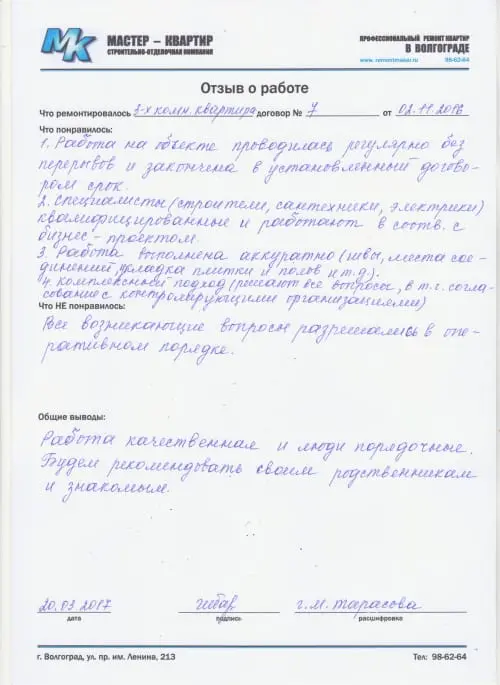 МК МАСТЕР – КВАРТИР
СТРОИТЕЛЬНО-ОТДЕЛОЧНАЯ КОМПАНИЯ
ПРОФЕССИОНАЛЬНЫЙ РЕМОНТ КВАРТИР
В ВОЛГОГРАДЕ
www. remontmaker.ru 98-62-64
Отзыв о работе
Что ремонтировалось 3-х комн. квартира договор № 7 от 02.11.2016
Что понравилось:
1. Работа на объекте проводилась регулярно без
перерывов и закончена в установленный догово-
ром срок.
2. Специалисты (строители, сантехники, электрики)
квалифицированные и работают в соотв. с
бизнес-проектом.
3. Работа выполнена аккуратно (швы, места сое-
динений, укладка плитки и полов и т.д.).
4. Комплексный подход (решают все вопросы, в т.ч. согла-
сование с контролирующими организациями)
Что НЕ понравилось:
Все возникающие вопросы разрешались в опе-
ративном порядке.
Общие выводы:
Работа качественная и люди порядочные.
Будем рекомендовать своим родственникам
и знакомым.
20.03.2017 г.М. Тарасова
дата подпись расшифровка
г. Волгоград, ул. пр. им. Ленина, 213 Тел: 98-62-64